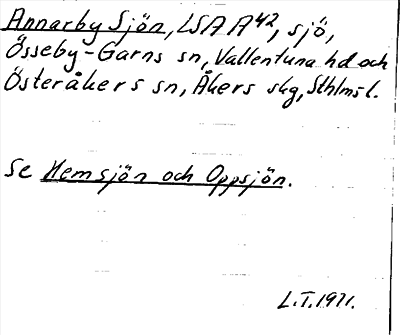 Annarby Sjön, LSA A42, sjö,
Össeby-Garns sn, Vallentuna hd och
Österåkers sn, Åkers skg, Sthlms l.
Se Hemsjön och Oppsjön.
L.I.1971.